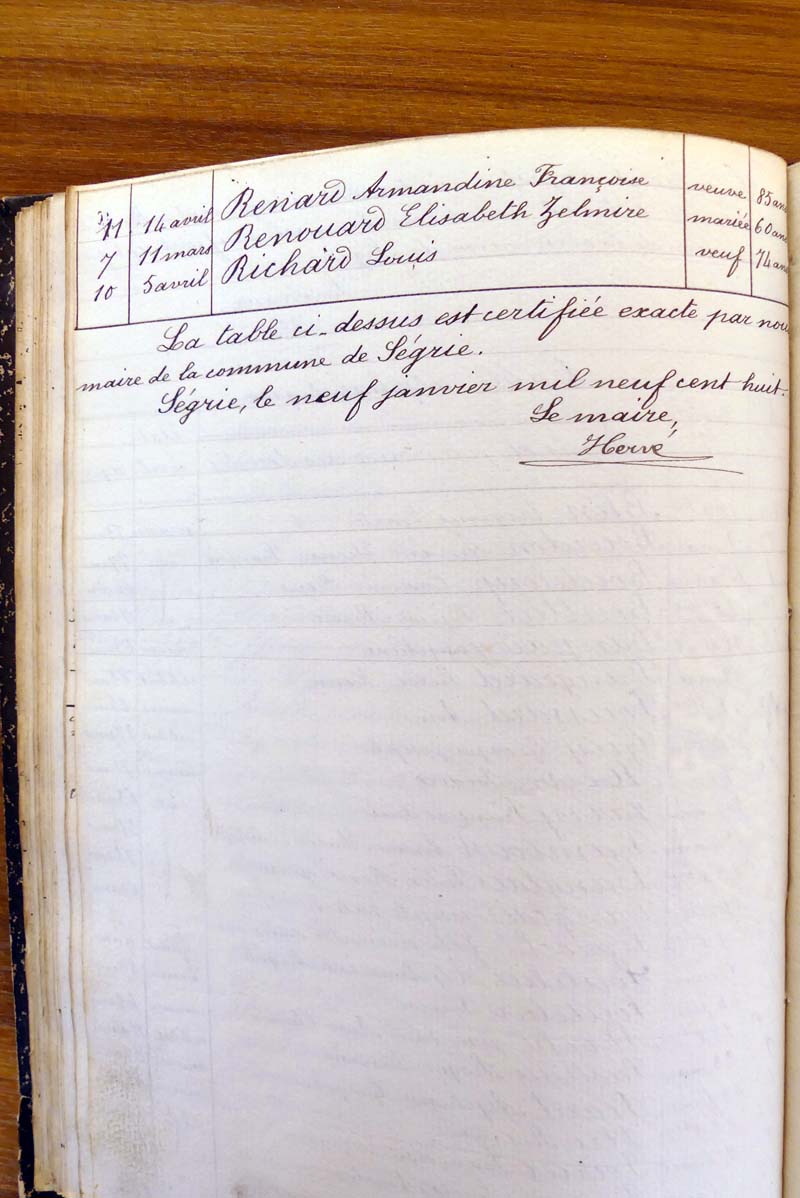 11 14 avril Renard Armandine Françoise veuve 85 ans
7 11 mars Renouard Elisabeth Zelmire mariée 60 ans
10 5 avril Richard Louis veuf 74 ans
La table ci-dessus est certifiée exacte par nous
maire de la commune de Ségrie.
Ségrie, le neuf janvier mil neuf cent huit.
Le maire,
Hervé